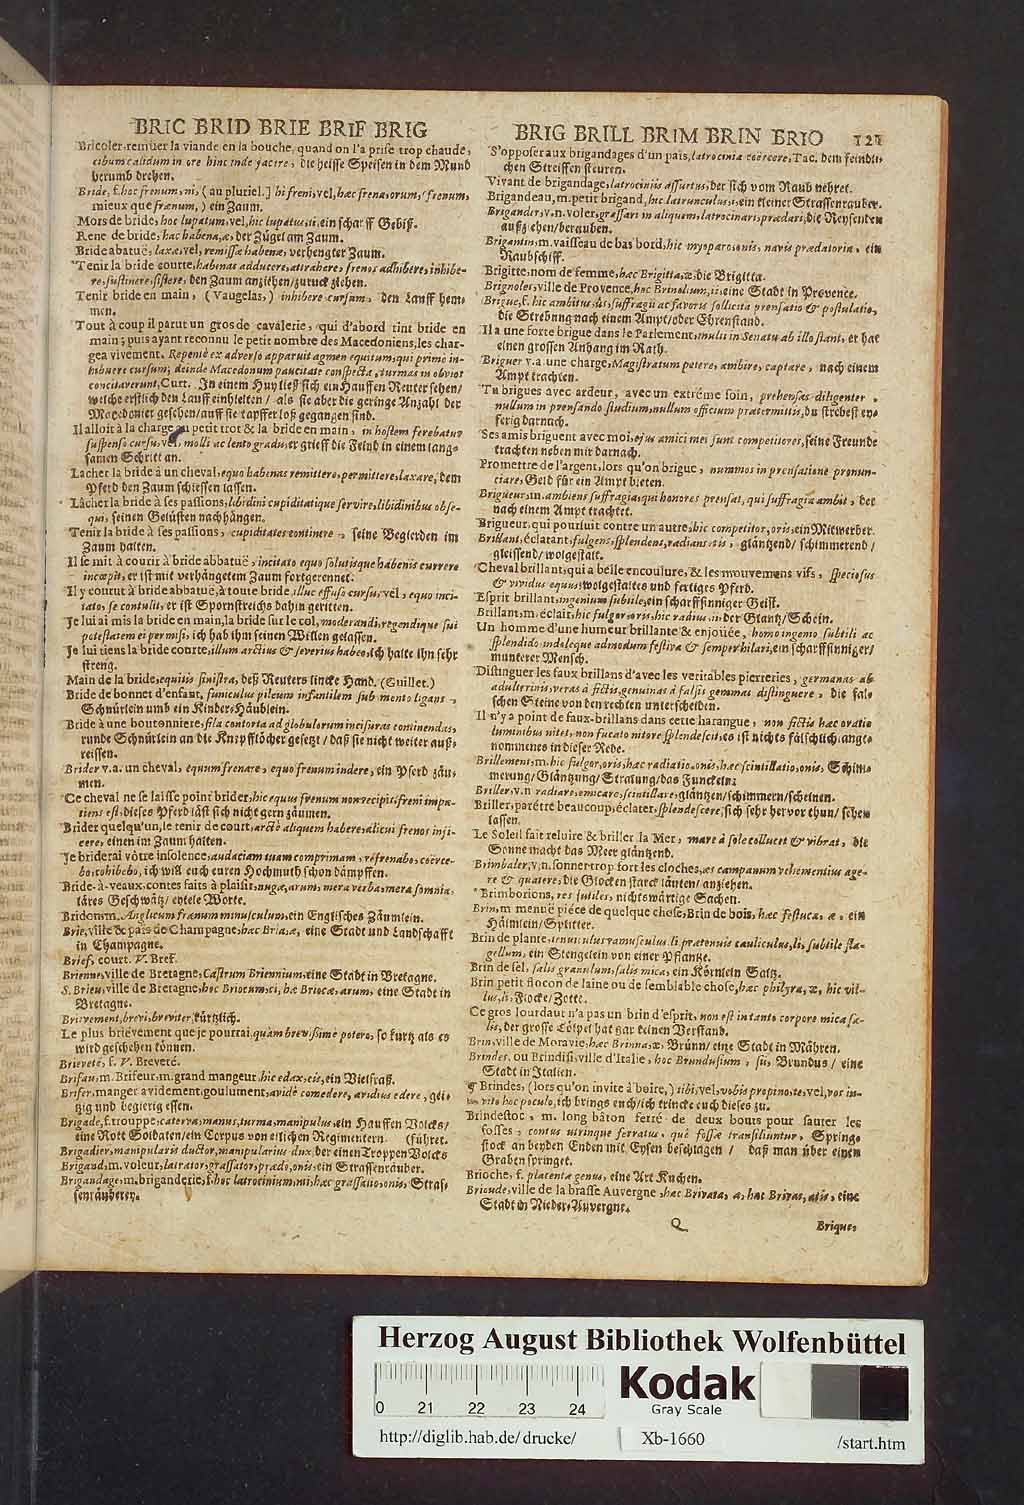 BRIC BRID BRIE BRIF BRIG
Bricoler, remüer la viande en la bouche, quand on l'a prise trop chaude,
cibum calidum in ore hinc inde jacere, die heisse Speisen in dem Mund
herumb drehen.
Bride, f. hoc frenum, ni, (au pluriel.) hi freni, vel, hæc frena, orum, (frenum,
mieux que frænum,) ein Zaum.
Mors de bride, hoc lupatum, vel, hic lupatus, ti, ein scharff Gebiß.
Rene de bride, hæc habena, æ, der Zügel am Zaum.
Bride abatuë, laxæ, vel, remissæ habenæ, verhengter Zaum.
*Tenir la bride courte, habenas adducere, attrahere, frenos adhibere, inhibe-
re, sustinere, sistere, den Zaum anziehen/zuruck ziehen.
Tenir bride en main, (Vaugelas,) inhibere cursum, den Lauff hem-
men.
Tout à coup il parut un gros de cavalerie, qui d'abord tint bride en
main; puis ayant reconnu le petit nombre des Macedoniens, les char-
gea vivement. Repentè ex adverso apparuit agmen equitum, qui primo in-
hibuere cursum; deinde Macedonum paucitate conspecta, turmas in obvios
concitaverunt, Curt. In einem Huy ließ sich ein Hauffen Reuter sehen/
welche erstlich den Lauff einhielten/ als sie aber die geringe Anzahl der
Macedonier gesehen/auff sie tapffer loß gegangen sind.
Il alloit à la charge au petit trot & la bride en main, in hostem ferebatur
suspenso cursu, vel, molli ac lento gradu, er grieff die Feind in einem lang-
samen Schritt an.
Lacher la bride à un cheval, equo habenas remittere, permittere, laxare, dem
Pferd den Zaum schiessen lassen.
* Lâcher la bride à ses passions, libidini cupiditatique servire, libidinibus obse-
qui, seinen Gelüsten nachhängen.
Tenir la bride à ses passions, cupiditates continere, seine Begierden im
Zaum halten.
Il se mit à courir à bride abbatuë, incitato equo solutisque habenis currere
incœpit, er ist mit verhängetem Zaum fortgerennet.
Il y courut à bride abbatuë, à toute bride, illuc effuso cursu, vel, equo inci-
tato, se contulit, er ist Spornstreichs dahin geritten.
Je lui ai mis la bride en main, la bride sur le col, moderandi, regendique sui
potestatem ei permisi, ich hab ihm seinen Willen gelassen.
Je lui tiens la bride courte, illum arctius & severius habeo, ich halte ihn sehr
streng.
Main de la bride, equitis sinistra, deß Reuters lincke Hand. (Guillet.)
Bride de bonnet d'enfant, funiculus pileum infantilem sub mento ligans,
Schnürlein umb ein Kinder-Häublein.
Bride à une boutonniere, fila contorta ad globulorum incisuras continendas,
runde Schnürlein an die Knopfflöcher gesetzt/daß sie nicht weiter auß-
reissen.
Brider v. a. un cheval, equum frenare, equo frenum indere, ein Pferd zäu-
men.
*Ce cheval ne se laisse point brider, hic equus frenum non recipit, freni impa-
tiens est, dieses Pferd läst sich nicht gern zäumen.
*Brider quelqu'un, le tenir de court, arctè aliquem habere, alicui frenos inji-
cere, einen im Zaum halten.
*Je briderai vôtre insolence, audaciam tuam comprimam, refrenabo, coërce-
bo, cohibebo, ich will euch euren Hochmuth schon dämpffen.
Bride-à-veaux, contes faits à plaisir, nugæ, arum, mera verba, mera somnia,
läres Geschwätz/ eytele Worte.
Bridon, m. Anglicum frænum minusculum, ein Englisches Zäumlein.
Brie, ville & païs de Champagne, hæc Bria, æ, eine Stadt und Landschafft
in Champagne.
Brief, court. V. Bref.
Brienne, ville de Bretagne, Castrum Briennium, eine Stadt in Bretagne.
S. Brieu, ville de Bretagne, hoc Briocum, ci, hæ Briocæ, arum, eine Stadt in
Bretagne.
Brievement, brevi, breviter, kürtzlich.
Le plus briévement que je pourrai, quàm brevissimè potero, so kurtz als es
wird geschehen können.
Brieveté, f. V. Breveté.
Brifau, m. Brifeur, m. grand mangeur, hic edax, cis, ein Vielfraß.
Brifer, manger avidement, goulument, avidè comedere, avidius edere, gei-
tzig und begierig essen.
Brigade, f. trouppe, caterva, manus, turma, manipulus, ein Hauffen Volcks/
eine Rott Soldaten/ein Corpus von etlichen Regimentern. (führet.
Brigadier, manipularis ductor, manipularius dux, der einen Troppen Volcks
Brigand, m. voleur, latrator, grassator, prædo, onis, ein Strassenräuber.
Brigandage, m. briganderie, f. hoc latrocinium, nii, hæc grassatio, onis, Stras-
senräuberey.
BRIG BRILL BRIM BRIN BRIO 121
S'opposer aux brigandages d'un païs, latrocinia coërcere, Tac. dem feindli-
chen Streiffen steuren.
Vivant de brigandage, latrociniis assuetus, der sich vom Raub nehret.
Brigandeau, m. petit brigand, hic latrunculus, i, ein kleiner Strassenrauber.
Brigander, v. n. voler, grassari in aliquem, latrocinari, prædari, die Reysenden
außziehen/berauben.
Brigantin, m. vaisseau de bas bord, hic myoparo, onis, navis prædatoria, ein
Raubschiff.
Brigitte, nom de femme, hæc Brigitta, æ, die Brigitta.
Brignoles, ville de Provence, hoc Brinolium, ii, eine Stadt in Provence.
Brigue, f. hic ambitus, ûs, suffragii ac favoris sollicita prensatio & postulatio,
die Strebung nach einem Ampt/oder Ehrenstand.
Il a une forte brigue dans le Parlement, multi in Senatu ab illo stant, et hat
einen grossen Anhang im Rath.
Briguer v. a une charge, Magistratum petere, ambire, captare, nach einem
Ampt trachten.
Tu brigues avec ardeur, avec un extréme soin, prehensas diligenter,
nullum in prensando studium, nullum officium prætermittis, du strebest ey-
ferig darnach.
Ses amis briguent avec moi, ejus amici mei sunt competitores, seine Freunde
trachten neben mir darnach.
Promettre de l'argent, lors qu'on brigue, nummos in prensatione pronun-
ciare, Geld für ein Ampt bieten.
Brigueur, m. ambiens suffragia, qui honores prensat, qui suffragia ambit, der
nach einem Ampt trachtet.
Brigueur, qui poursuit contre un autre, hic competitor, oris, ein Mitwerber.
Brillant, éclatant, fulgens, splendens, radians, tis, gläntzend/ schimmerend/
gleissend/ wolgestalt.
*Cheval brillant, qui a belle encoulure, & les mouvemens vifs, speciosus
& vividus equus, wolgestaltes und fertiges Pferd.
Esprit brillant, ingenium subtile, ein scharffsinniger Geist.
Brillant, m. éclair, hic fulgor, oris, hic radius, ii, der Glantz/Schein.
Un homme d'une humeur brillante & enjoüée, homo ingenio subtili ac
splendido, indoleque admodum festiva & semper hilari, ein scharffsinniger/
munterer Mensch.
Distinguer les faux brillans d'avec les veritables pierreries, germanas ab
adulterinis, veras à fictis, genuinas à falsis gemmas distinguere, die fal-
schen Steine von den rechten unterscheiden.
Il n'y a point de faux-brillans dans cette harangue, non fictis hæc oratio
luminibus nitet, non fucato nitore splendescit, es ist nichts fälschlich ange-
nommenes in dieser Rede.
Brillement, m. hic fulgor, oris, hæc radiatio, onis, hæc scintillatio, onis, Schim-
merung/Gläntzung/Stralung/das Funckeln.
Briller, v. n radiare, emicare, scintillare, gläntzen/schimmern/scheinen.
Briller, parétre beaucoup, éclater, splendescere, sich sehr hervor thun/ sehen
lassen.
Le Soleil fait reluire & briller la Mer, mare à sole collucet & vibrat, die
Sonne macht das Meer gläntzend.
Brimbaler, v. n. sonner trop fort les cloches, æs campanum vehementius age-
re & quatere, die Glocken starck läuten/ anziehen.
*Brimborions, res futiles, nichtswärtige Sachen.
Brin, m menuë piéce de quelque chose, Brin de bois, hæc festuca, æ, ein
Hälmlein/Splitter.
Brin de plante, tenui culus ramusculus, li, prætenuis cauliculus, li, subtile fla-
gellum, ein Stengelein von einer Pflantze.
Brin de sel, salis granulum, salis mica, ein Körnlein Saltz.
Brin petit flocon de laine ou de semblable chose, hæc philyra, æ, hic vil-
lus, li, Flocke/Zotte.
Ce gros lourdaut n'a pas un brin d'esprit, non est in tanto corpore mica sa-
lis, der grosse Tölpel hat gar keinen Verstand.
Brin, ville de Moravie, hæc Brinna, æ, Brünn/ eine Stadt in Mähren.
Brindes, ou Brindisi, ville d'Italie, hoc Brundusium, sii, Brundus / eine
Stadt in Italien.
¶ Brindes, (lors qu'on invite à boire,) tibi, vel, vobis propino, te, vel, vos in-
vito hoc poculo, ich brings euch/ich trincke euch dieses zu.
Brindestoc, m. long bâton ferré de deux bouts pour sauter les
fosses, contus utrinque ferratus, quò fossæ transiliuntur, Spring-
stock an beyden Enden mit Eysen beschlagen / daß man über einen
Graben springet.
Brioche, f. placentæ genus, eine Art Kuchen.
Brioude, ville de la basse Auvergne, hæc Brivata, æ, hæc Brivas, atis, eine
Stadt in Nieder-Auvergne.
Q Brique,
Herzog August Bibliothek Wolfenbüttel
0 21 22 23 24
Kodak
Gray Scale
http://diglib.hab.de/drucke/ Xb-1660 /start.htm